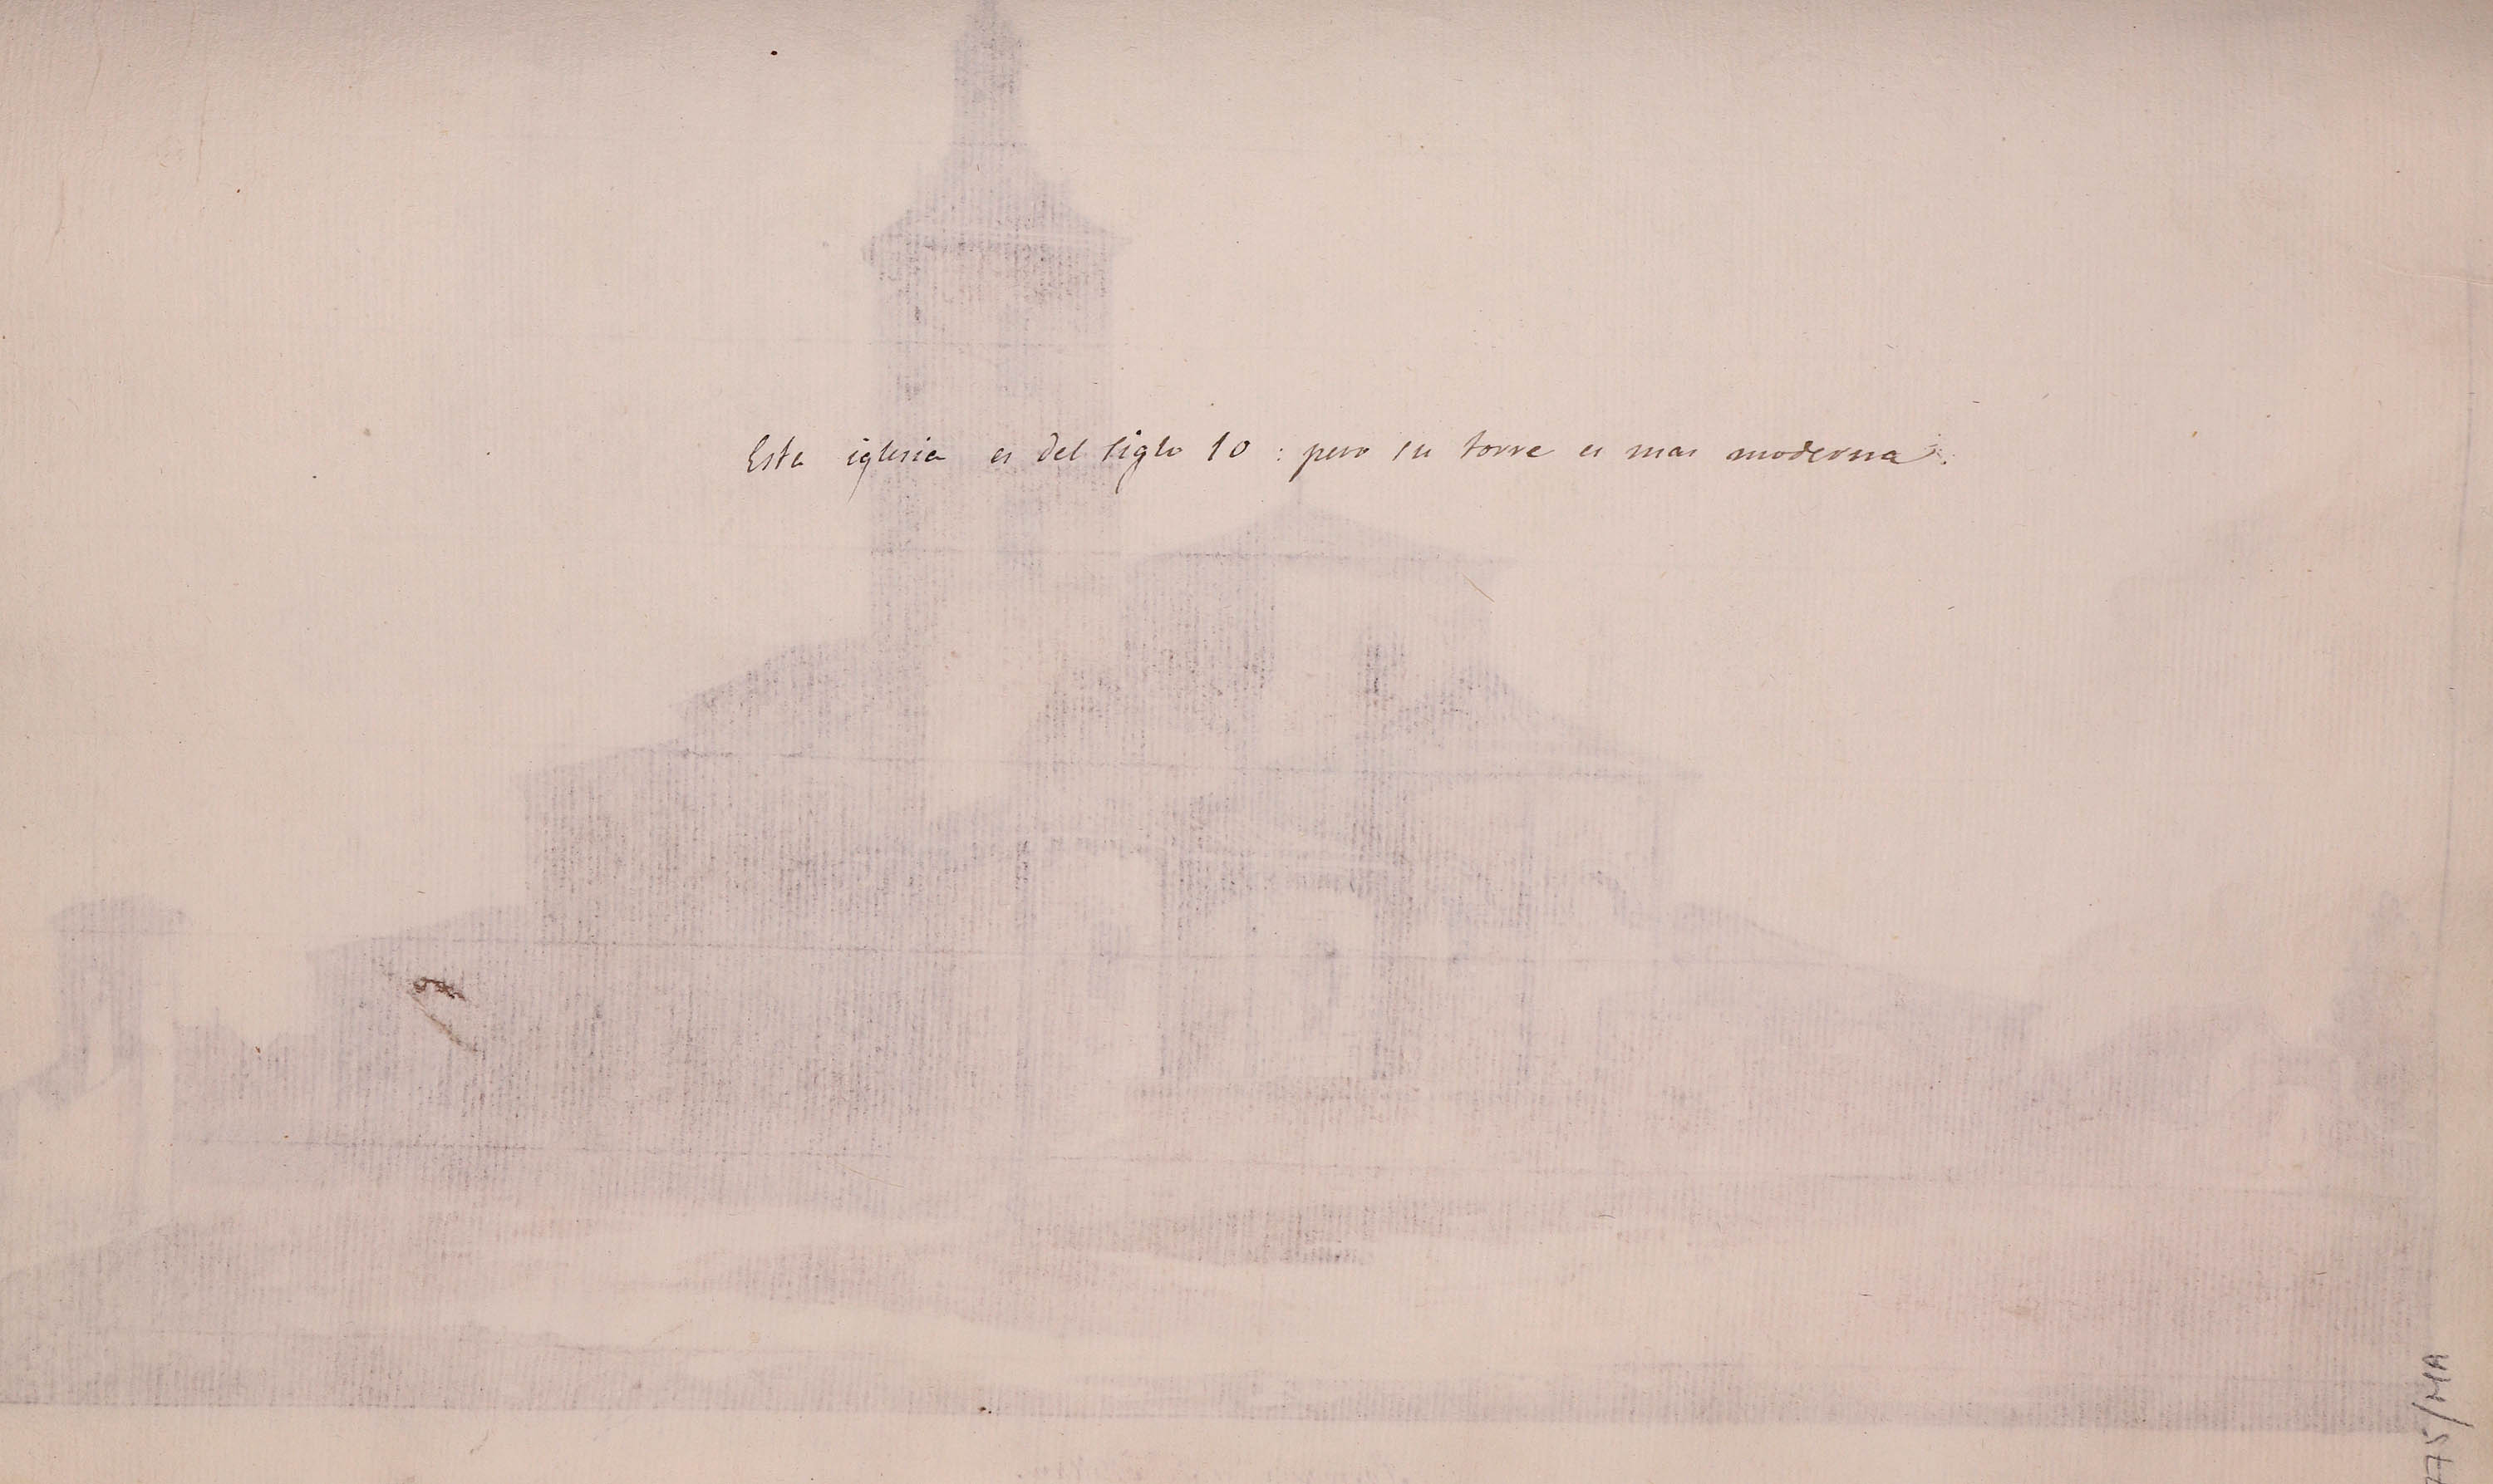 Esta iglesia es del siglo 10: pero su torre es mas moderna.
75/MA